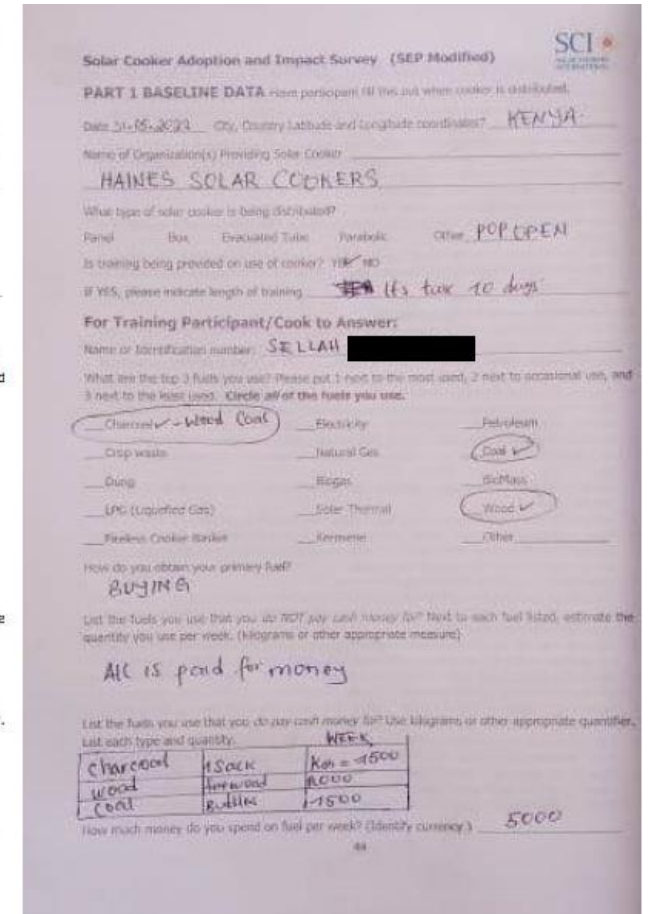 SCI
Solar Cooker Adoption and Impact Survey (SEP Modified)
PART 1 BASELINE DATA Have participant fill this out when cooker is distributed.
Date 31-05-2022 City, Country Latitude and Longitude coordinates? KENYA
Name of Organization(s) Providing Solar Cooker
HAINES SOLAR COOKERS
What type of solar cooker is being distributed?
Panel Box Evacuated Tube Parabolic Other POP OPEN
Is training being provided on use of cooker? YES NO
If YES, please indicate length of training Its took 10 days
For Training Participant/Cook to Answer:
Name or Identification number: SELLAH
What are the top 3 fuels you use? Please put 1 next to the most used, 2 next to occasional use, and
3 next to the least used. Circle all of the fuels you use.
Charcoal - Wood Coal Electricity Petroleum
Crop waste Natural Gas Coal
Dung Biogas BioMass
LPG (Liquefied Gas) Solar Thermal Wood
Fireless Cooker Basket Kerosene Other
How do you obtain your primary fuel?
BUYING
List the fuels you use that you do NOT pay cash money for? Next to each fuel listed, estimate the
quantity you use per week. (kilograms or other appropriate measure)
All is paid for money
List the fuels you use that you do pay cash money for? Use kilograms or other appropriate quantifier.
List each type and quantity. WEEK
charcoal 1 Sack Ksh = 1500
wood 2000
coal 1500
How much money do you spend on fuel per week? (Identify currency) 5000